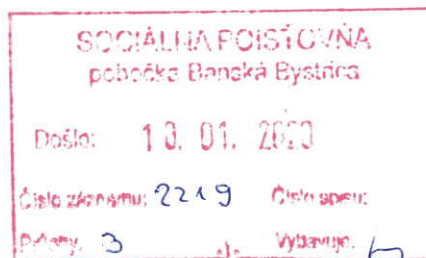 SOCIÁLNA POISŤOVŇA
pobočka Banská Bystrica
Došlo: 10. 01. 2020
Číslo záznamu: 2219 Číslo spisu:
Prílohy: 3 Vybavuje: